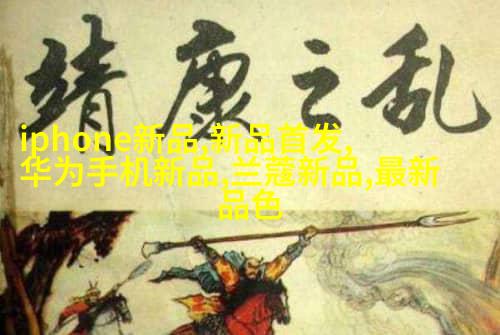 靖康之乱
iphone新品,新品首发,
华为手机新品,兰蔻新品,最新
品色